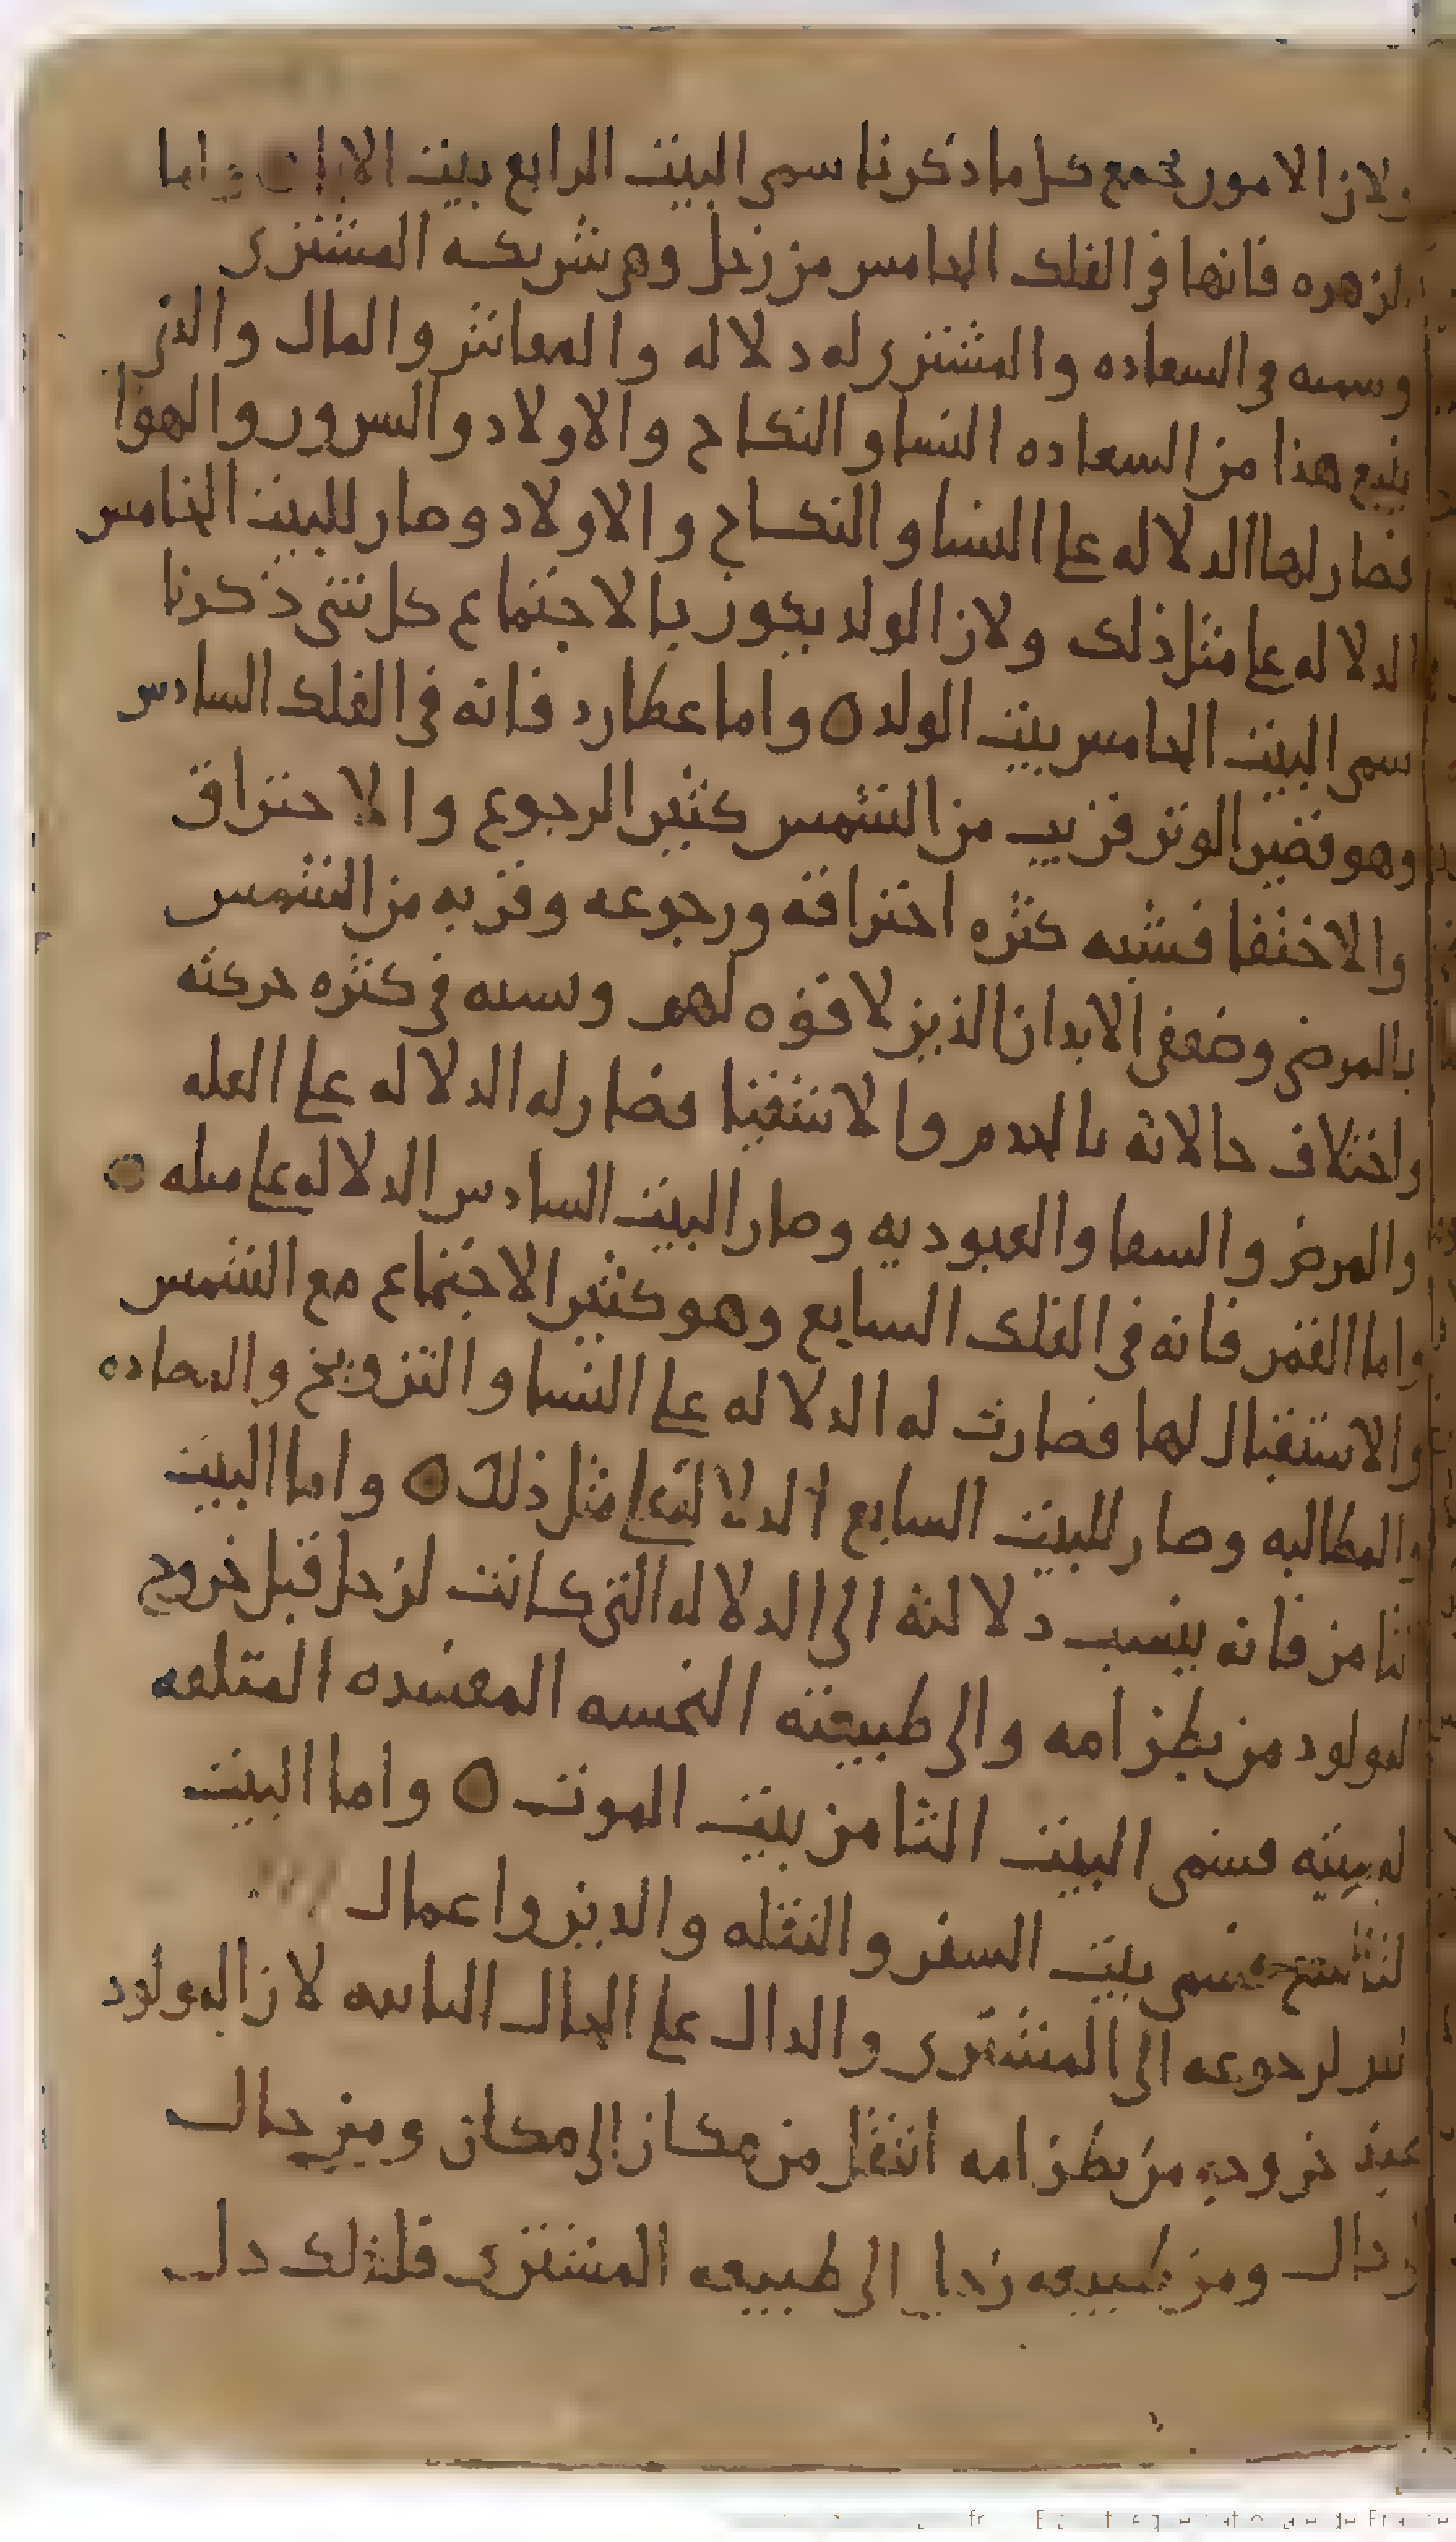 ولان الامور تجمع كل ما ذكرنا سمى البيت الرابع بيت الابا واما
الزهره فانها فى الفلك الخامس من زحل وهى شريكه المشترى
وسبه فى السعاده والمشترى له دلاله والمعاش والمال والذى
يتبع هذا من السعاده النسا والنكاح والاولاد والسرور والهوا
فصار لها الدلاله على النسا والنكاح والاولاد وصار للبيت الخامس
الدلاله على مثل ذلك ولان الولد يكون بالاجتماع كل شى ذكرنا
سمى البيت الخامس بيت الولد ه واما عطارد فانه فى الفلك السادس
وهو قصير الوتر قريب من الشمس كثير الرجوع والاحتراق
والاختفا فشبه كثره احتراقه ورجوعه وقربه من الشمس
بالمرضى وضعفى الابدان الذين لا قوه لهم وسبه فى كثره حركته
واختلاف حالاته بالخدم والاشقيا فصار له الدلاله على العله
والمرض والسفا والعبوديه وصار البيت السادس الدلاله على مثله ه
واما القمر فانه فى الفلك السابع وهو كثير الاجتماع مع الشمس
والاستقبال لها فصارت له الدلاله على النسا والتزويج والمضاده
والمطالبه وصار للبيت السابع الدلالة على مثل ذلك ه واما البيت
الثامن فانه ينسب دلالته الى الدلاله التى كانت لزحل قبل خروج
المولود من بطن امه والى طبيعته النحسه المفسده المتلفه
له بيته فسمى البيت الثامن بيت الموت ه واما البيت
التاسع فسمى بيت السفر والنقله والدين واعمال
البر لرجوعه الى المشترى والدال على الحال الثانيه لان المولود
عند خروجه من بطن امه انتقل من مكان الى مكان ومن حال
الى حال ومن طبيعه زحل الى طبيعه المشترى فلذلك دل